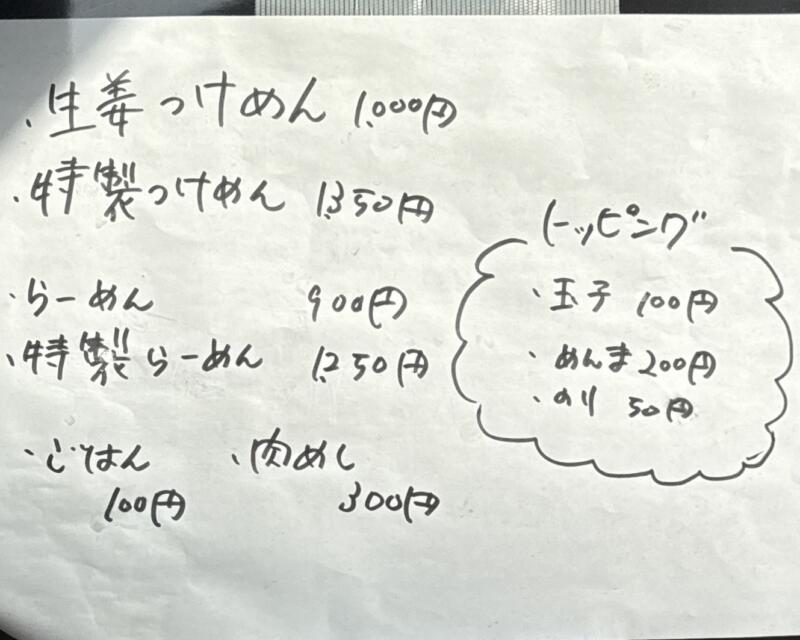 ・生姜つけめん 1,000円
・特製つけめん 1,350円
・らーめん 900円
・特製らーめん 1,250円
・ごはん ・肉めし
100円 300円
トッピング
・玉子 100円
・めんま 200円
・のり 50円